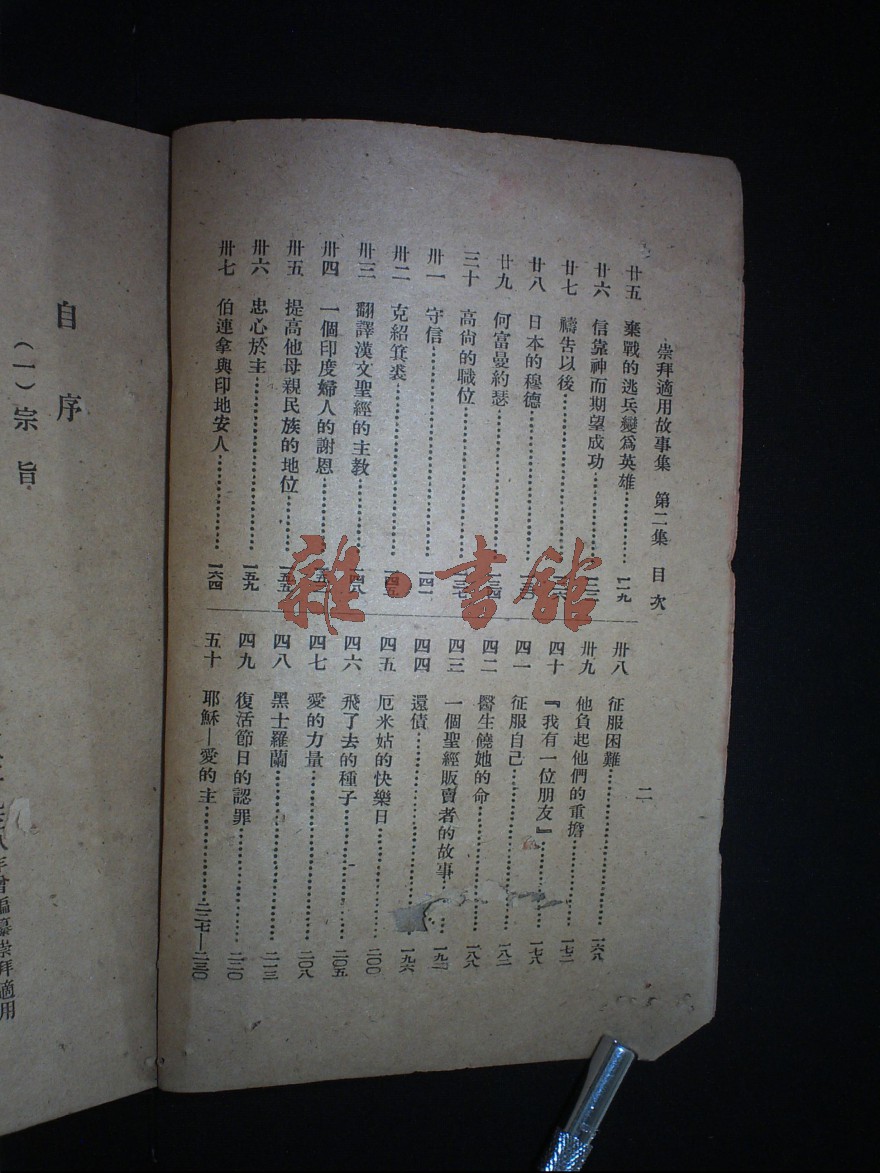 崇拜適用故事集 第二集 目次
二
廿五 棄戰的逃兵變爲英雄 一二九
廿六 信靠神而期望成功
廿七 禱告以後
廿八 日本的穆德
廿九 何富曼約瑟
三十 高尙的職位
卅一 守信 一四一
卅二 克紹箕裘
卅三 翻譯漢文聖經的主教
卅四 一個印度婦人的謝恩
卅五 提高他母親民族的地位
卅六 忠心於主 一五九
卅七 伯連拿與印地安人 一六四
卅八 征服困難 一六八
卅九 他負起他們的重擔 一七二
四十 『我有一位朋友』 一七八
四一 征服自己 一八二
四二 醫生饒她的命 一八八
四三 一個聖經販賣者的故事
四四 還債 一九六
四五 厄米姑的快樂日 二〇〇
四六 飛了去的種子 二〇五
四七 愛的力量 二〇八
四八 黑士羅蘭 二一三
四九 復活節日的認罪 二二〇
五十 耶穌—愛的主 二二七—二三〇
自序
（一）宗旨
年曾編纂崇拜適用
雜·書館